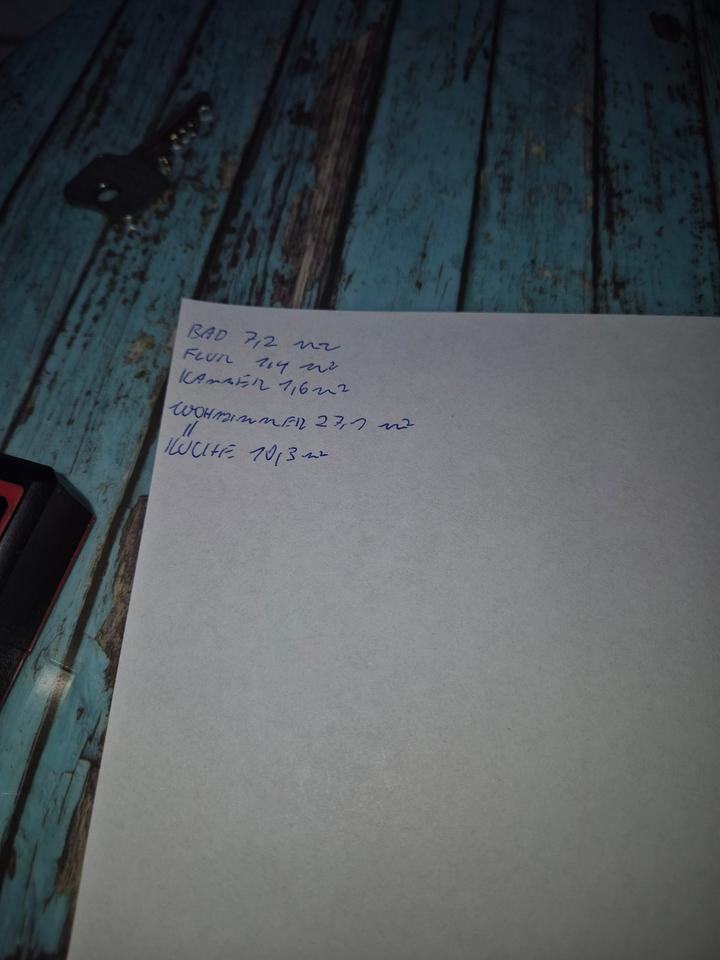 BAD 7,2 m²
FLUR 1,4 m²
KAMMER 1,6 m²
WOHNZIMMER 27,1 m²
KÜCHE 10,3 m²